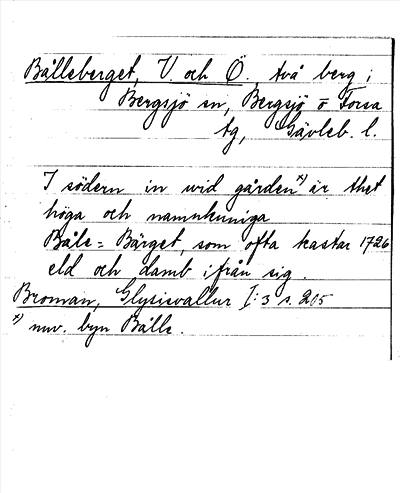 Bålleberget, V. och Ö., två berg i
Bergsjö sn, Bergsjö o Forsa
tg, Gävleb. l.
I södern in wid gården x) är thet
höga och namnkuniga
Båle=Bärget, som ofta kastar 1726
eld och damb ifrån sig.
Broman, Glysisvallur I:3 s. 205
x) nuv. byn Bålle.